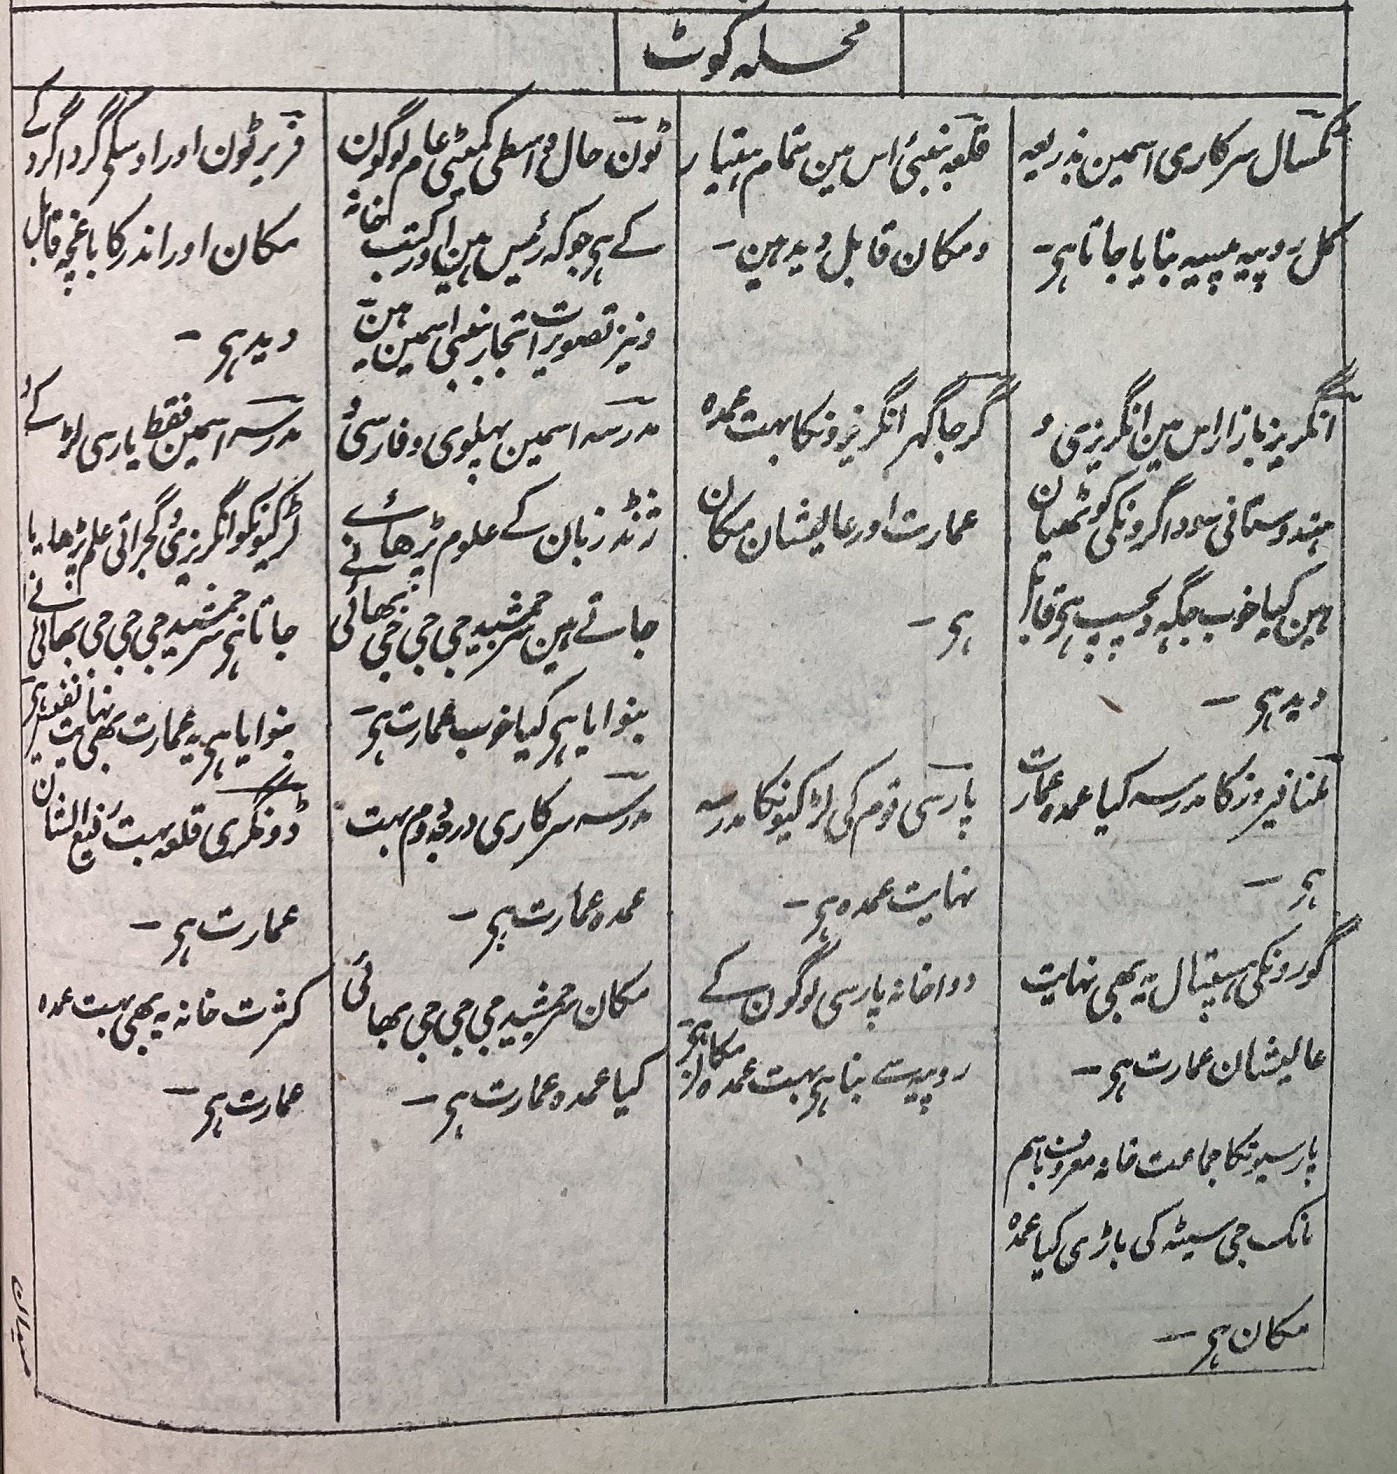 محلہ کوٹ
ٹکسال سرکاری اسمین بذریعہ
کل روپیہ پیسہ بنایا جاتا ہی ۔
انگریز بازار اس مین انگریزی و
ہندوستانی سوداگرونکی کوٹھیان
ہین کیا خوب جگہہ دلچسپ ہی قابل
دید ہی ۔
ملا فیروز کا مدرسہ کیا عمدہ عمارت
ہی ۔
گورونکی ہسپتال یہ بھی نہایت
عالیشان عمارت ہی ۔
پارسیونکا جماعت خانہ معروف باسم
مانک جی سیٹھ کی باڑی کیا عمدہ
مکان ہی ۔
قلعہ بمبئی اس مین تمام ہتیار
و مکان قابل دید ہین ۔
گرجا گہر انگریزونکا بہت عمدہ
عمارت اور عالیشان مکان
ہی ۔
پارسی قوم کی لڑکیونکا مدرسہ
نہایت عمدہ ہی ۔
دواخانہ پارسی لوگون کے
روپیہ سے بنا ہی بہت عمدہ مکان ہی
ٹون حال واسطی کمیٹی عام لوگون
کے ہی جو کہ رئیس ہین اور کتب خانہ
و نیز تصویرات تجار بمبئی اسمین ہین ۔
مدرسہ اسمین پہلوی و فارسی و
ژند زبان کے علوم پڑھائے
جاتے ہین سر جمشید جی جی جی بھائی نے
بنوایا ہی کیا خوب عمارت ہی ۔
مدرسہ سرکاری درجہ دوم بہت
عمدہ عمارت ہی ۔
مکان سر جمشید جی جی جی بھائی
کیا عمدہ عمارت ہی ۔
فریر ٹون اور اوسکی گرداگرد کے
مکان اور اندر کا باغچہ قابل
دید ہی ۔
مدرسہ اسمین فقط پارسی لڑکے و
لڑکیونکو انگریزی و گجراتی علم پڑھایا
جاتا ہی سر جمشید جی جی جی بھائی نے
بنوایا ہی یہ عمارت بھی نہایت نفیس ہی
ڈونگری قلعہ بہت رفیع الشان
عمارت ہی ۔
کثرت خانہ یہ بھی بہت عمدہ
عمارت ہی ۔